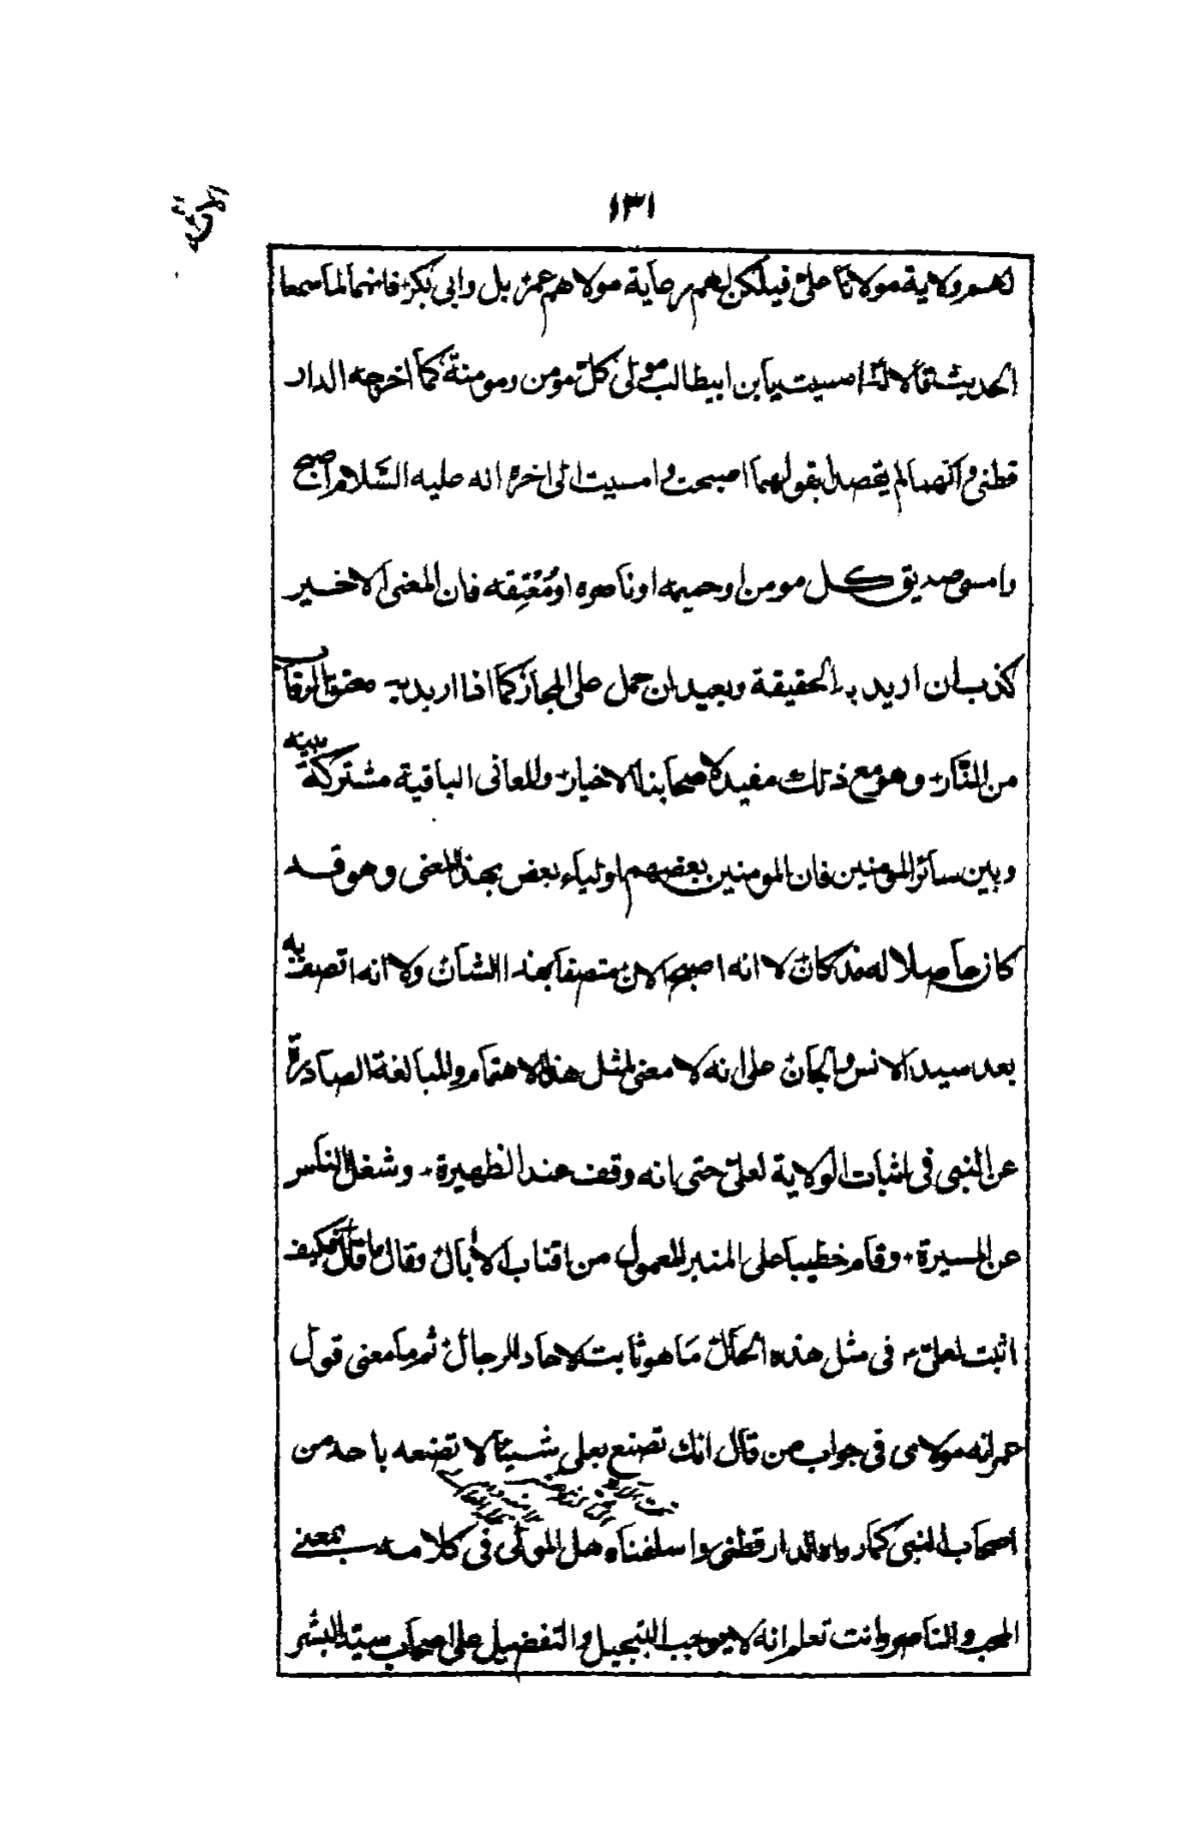 ١٣١
لهم ولاية مولانا علىّ فيكن لهم رعاية مولاهم عمر بل وابى بكر فانهما لما سمعا
الحديث قالا له امسيت يا بن ابيطالب مولى كلّ مومن ومومنة كما اخرجه الدار
قطنى وانهما لم يقصد بقولهما اصبحت وامسيت الى اخره انه عليه السّلام اصبح
وامسى صديق كل مومن او حميمه او ناصره او مُعْتِقه فان المعنى الاخير
كذب ان اريد به الحقيقة وبعيد ان حمل على المجاز كما اذا اريد به معتق الرقاب
من النّار وهو مع ذلك مفيد لاصحابنا الاخيار والمعانى الباقية مشتركة بينه
وبين سائر المومنين فان المومنين بعضهم اولياء بعض بهذا المعنى وهو قد
كان حاصلا له مذ كان لا انه اصبح الان متصفا بهذا الشان ولا انه اتصف به
بعد سيد الانس والجان على انه لا معنى لمثل هذا الاهتمام والمبالغة الصادرة
عن النبى فى اثبات الولاية لعلىّ حتى انه وقف عند الظهيرة وشغل الناس
عن المسيرة وقام خطيبا على المنبر المعمول من اقتاب الأبال وقال ما قال فكيف
اثبت لعلىّ فى مثل هذه الحال ما هو ثابت لاحاد الرجال ثم ما معنى قول
عمر انه مولاى فى جواب من قال انك تصنع بعلى شيئا لا تصنعه باحد من
اصحاب النبى كما رواه الدار قطنى واسلفناه هل المولى فى كلامه بمعنى
المحب والناصر وانت تعلم انه لا يوجب التبجيل والتفضيل على اصحاب سيّد البشر